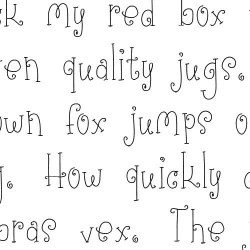 ck my red box
ven quality jugs.
own fox jumps o
g. How quickly d
bras vex. The